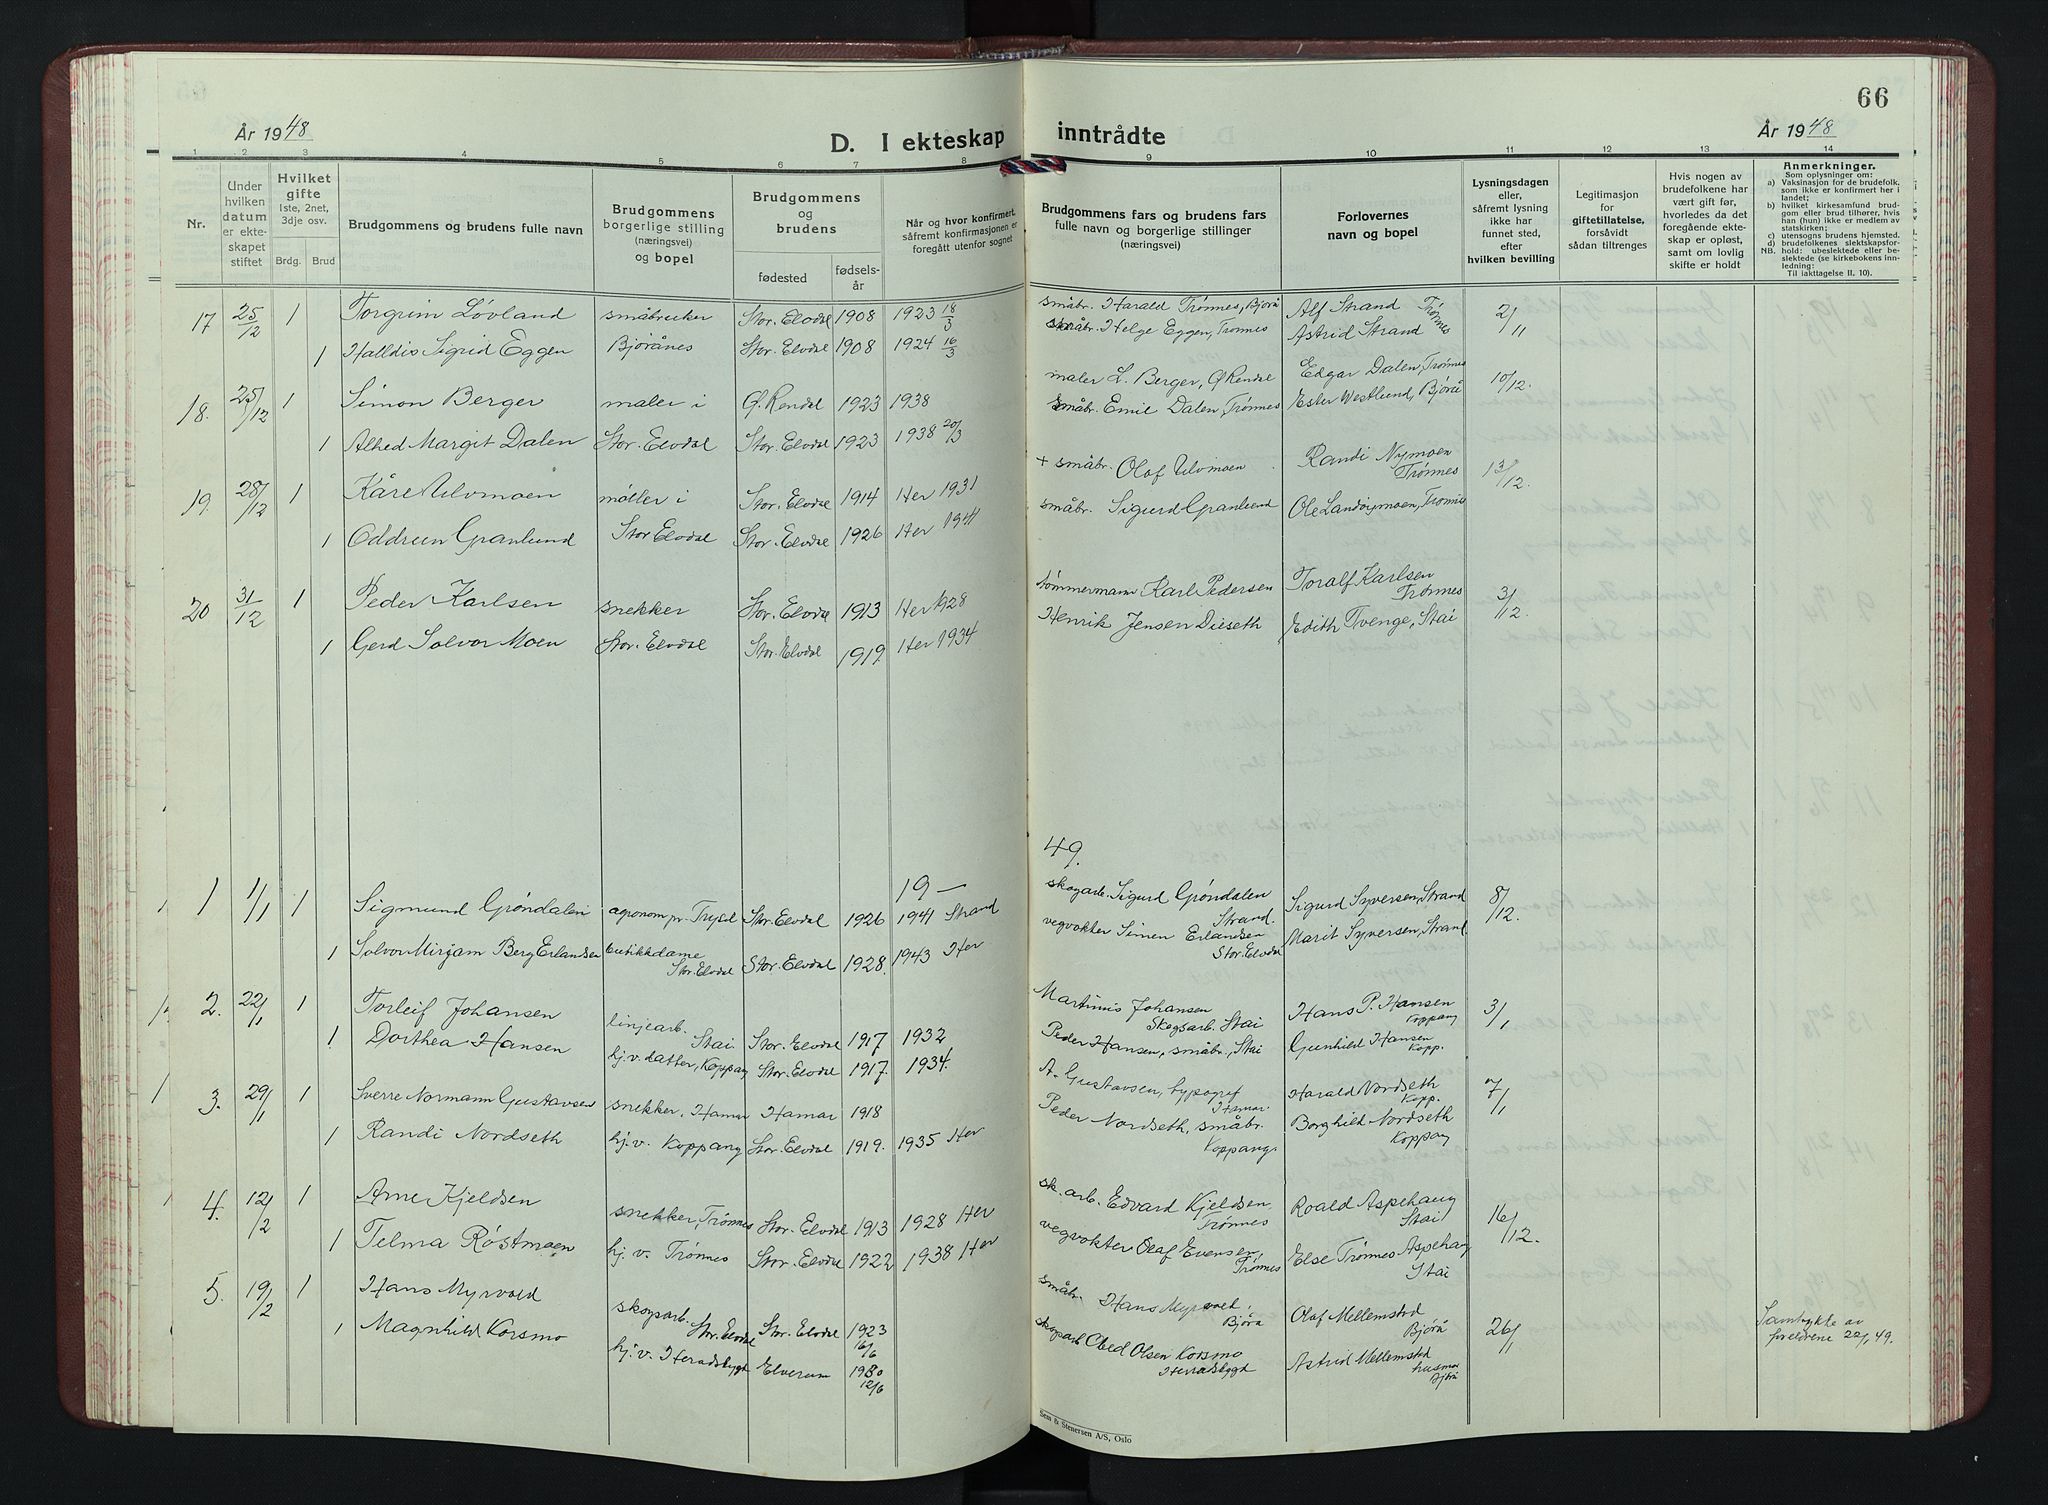 66
År 1948
D. I ekteskap inntrådte
År 1948
1 2 3 4 5 6 7 8 9 10 11 12 13 14
Nr.
Under hvilken datum er ekteskapet stiftet
Hvilket gifte 1ste, 2net, 3dje osv.
Brdg. Brud
Brudgommens og brudens fulle navn
Brudgommens borgerlige stilling (næringsvei) og bopel
Brudgommens og brudens
fødested
fødselsår
Når og hvor konfirmert, såfremt konfirmasjonen er foregått utenfor sognet
Brudgommens fars og brudens fars fulle navn og borgerlige stillinger (næringsvei)
Forlovernes navn og bopel
Lysningsdagen eller, såfremt lysning ikke har funnet sted, efter hvilken bevilling
Legitimasjon for giftetillatelse, forsåvidt sådan tiltrenges
Hvis nogen av brudefolkene har vært gift før, hvorledes da det foregående ekteskap er opløst, samt om lovlig skifte er holdt
Anmerkninger.
Som oplysninger om:
a) Vaksinasjon for de brudefolk, som ikke er konfirmert her i landet;
b) hvilket kirkesamfund brudgom eller brud tilhører, hvis han (hun) ikke er medlem av statskirken;
c) utensogns brudens hjemsted.
d) brudefolkenes slektskapsforhold: ubeslektede eller beslektede (se kirkebokens innledning:
NB. Til iakttagelse II. 10).
17 25/12 1 Torgrim Løvland småbruker Stor-Elvdal 1908 1923 18/3 småbr. Harald Trønnes, Bjørå Alf Strand Trønnes 2/11
1 Halldis Sigrid Eggen Bjørånes Stor-Elvdal 1908 1924 16/3 småbr. Helge Eggen, Trønnes Astrid Strand
18. 25/12 1 Simon Berger maler i Ø. Rendal 1923 1938 maler L. Berger, Ø Rendal Edgar Dalen, Trønnes 10/12.
1 Alhed Margit Dalen Stor-Elvdal Stor-Elvdal 1923 1938 20/3 småbr. Emil Dalen, Trønnes Ester Westlund, Bjørå
19. 28/12 1 Kåre Ulvmoen møller i Stor-Elvdal 1914 Her 1931 + småbr. Olaf Ulvmoen Randi Nymoen Trønnes 13/12.
1 Oddrun Granlund Stor Elvdal Stor-Elvdal 1926 Her 1941 småbr. Sigurd Granlund Ole Landörjmoen, Trønnes
20 31/12 1 Peder Karlsen snekker Stor-Elvdal 1913 Her 1928 tømmermann Karl Pedersen Toralf Karlsen Trønnes 3/12
1 Gerd Solvor Moen Stor-Elvdal Stor-Elvdal 1919. Her 1934 Henrik Jensen Dieseth Edith Tvenge, Stai
19— 49.
1 1/1 1 Sigmund Grøndalen agronom pr. Trysil Stor-Elvdal 1926 1941 Strand skogarb. Sigurd Grøndalen Strand. Sigurd Syversen, Strand 8/12.
1 Solvor Mirjam Berg Erlandsen butikkdame Stor-Elvdal Stor-Elvdal 1928. 1943 Her vegvokter Simen Erlandsen Stor-Elvdal Marit Syversen, Strand
2. 22/1 1 Torleif Johansen linjearb. Stai Stor-Elvdal 1917 1932 Martinus Johansen Skogsarb. Stai Hans P. Hansen Koppang 3/1
1 Dorthea Hansen hj. v. datter, Koppang Stor-Elvdal 1917. 1934. Peder Hansen, småbr., Stai Gunhild Hansen Kopp.
3. 29/1 1 Sverre Normann Gustavsen snekker, Hamar Hamar 1918 A. Gustavsen, typograf Hamar. Harald Nordseth Kopp. 7/1
1 Randi Nordseth hj. v. Koppang Stor-Elvdal 1919. 1935 Her Peder Nordseth, småbr. Koppang. Borghild Nordseth Koppang
4. 12/2 1 Arne Kjeldsen snekker, Trønnes Stor-Elvdal 1913 1928 Her sk.arb. Edvard Kjeldsen, Trønnes Roald Aspehaug Stai 16/12.
1 Telma Røstmoen hj. v. Trønnes Stor-Elvdal 1922 1938 Her vegvokter Olaf Evensen, Trønnes Else Trønnes Aspehaug Stai
5. 19/2 1 Hans Myrvold skogsarb. Stor-Elvdal Stor-Elvdal 1923 16/6 småbr. Hans Myrvold, Bjørå Olaf Mellemstad Bjørå 26/1 Samtykke av foreldrene 22/1 49.
1 Magnhild Korsmo hj. v. Heradsbygd Elverum 1930 12/6 skogsarb Obed Olsen Korsmo Heradsbygd Astrid Mellemstad husmor Bjørå
Sem & Stenersen A/S, Oslo